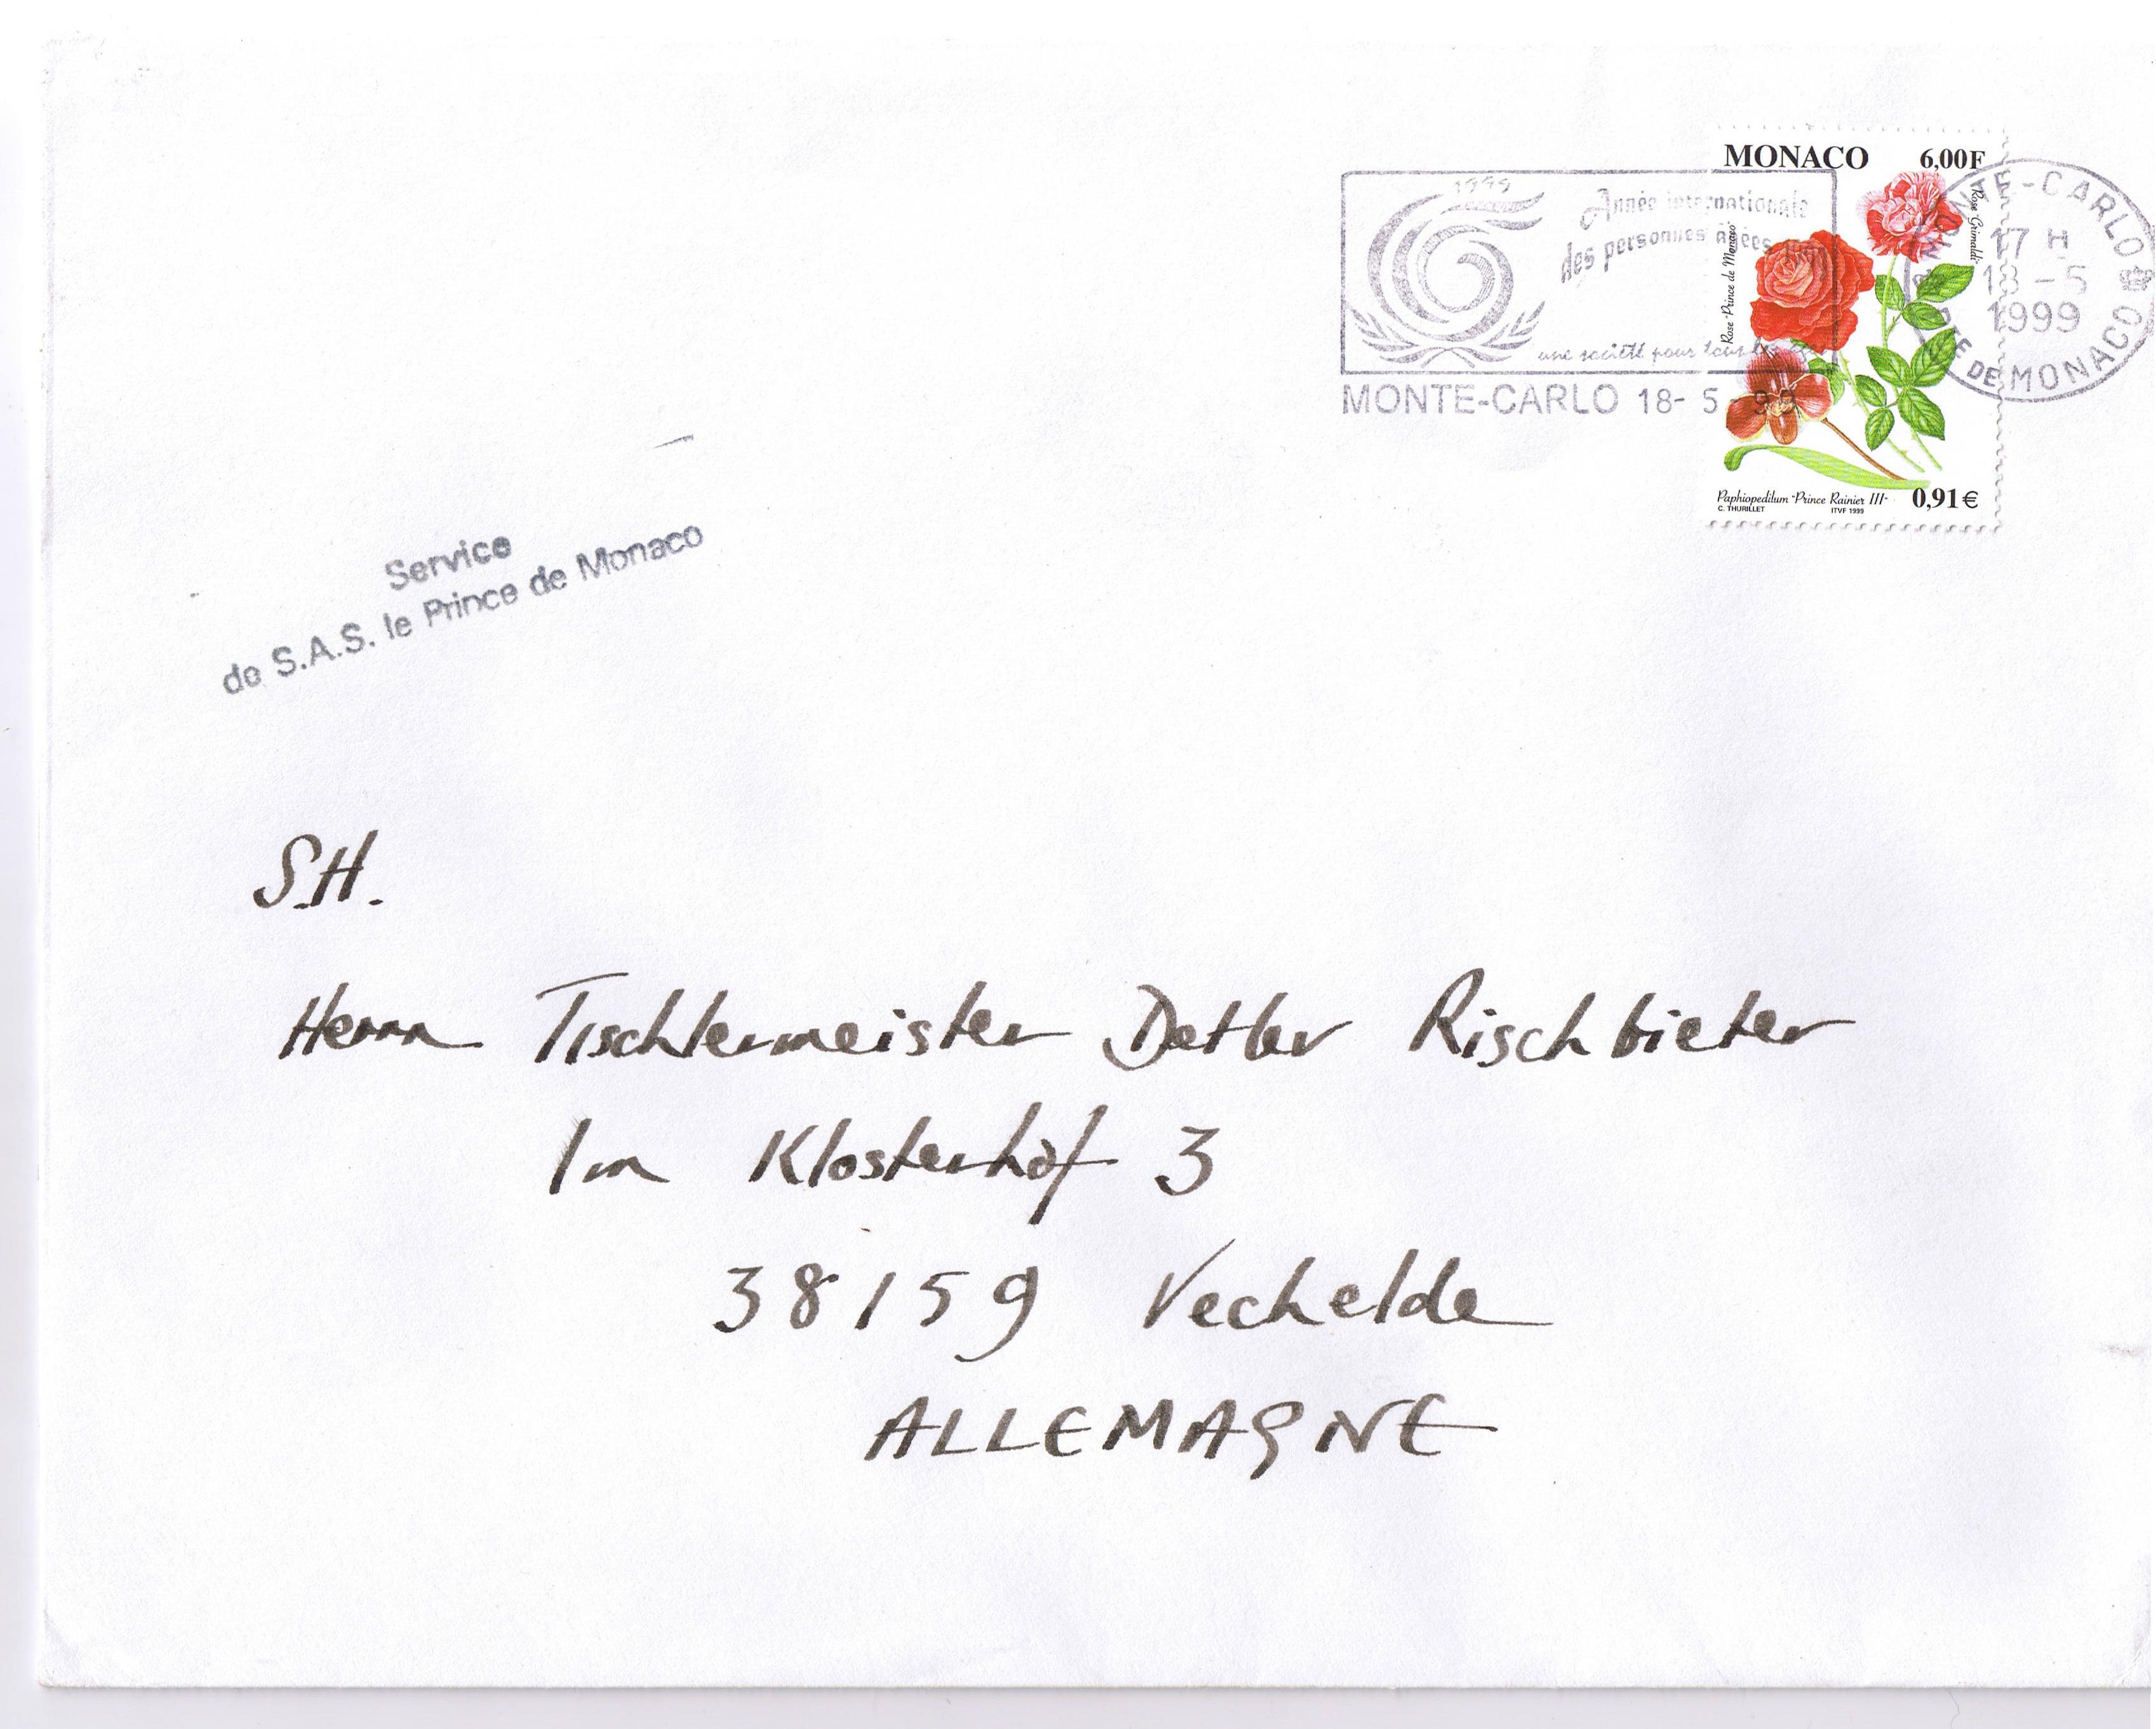 MONACO 6,00F
Rose "Grimaldi"
Rose "Prince de Monaco"
1999
Année internationale
des personnes agées
une société pour tous
MONTE-CARLO 18- 5 - 99
MONTE-CARLO
17 H
18 -5
1999
PTE DE MONACO
Paphiopedilum "Prince Rainier III" 0,91€
C. THURILLET ITVF 1999
Service
de S.A.S. le Prince de Monaco
S.H.
Herrn Tischlermeister Detlev Rischbieter
Im Klosterhof 3
38159 Vechelde
ALLEMAGNE